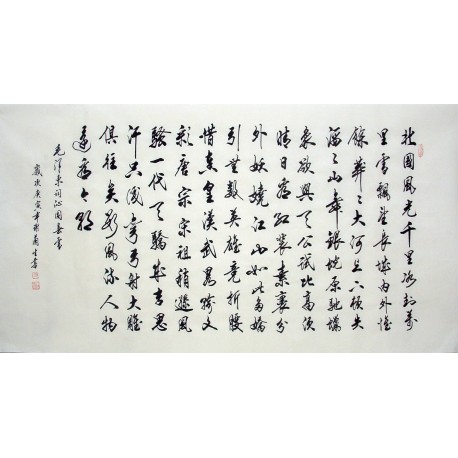 北國風光千里冰封萬
里雪飄望長城內外惟
餘莽々大河上下頓失
滔々山舞銀蛇原馳蠟
象欲與天公試比高須
晴日看紅裝素裹分
外妖嬈江山如此多嬌
引無數英雄競折腰
惜秦皇漢武略輸文
彩唐宗宋祖稍遜風
騷一代天驕成吉思
汗只識彎弓射大雕
俱往矣數風流人物
還看今朝
毛澤東詞沁園春雪
歲次庚寅年書